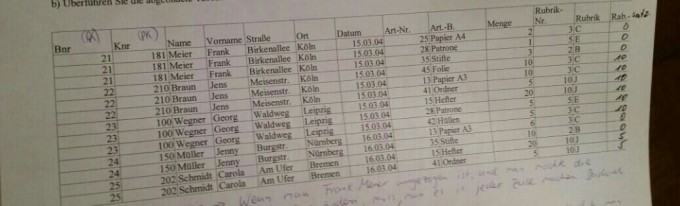 b) Überführen Sie die
(PK) (PK) Rubrik-
Bnr Knr Name Vorname Straße Ort Datum Art-Nr. Art.-B. Menge Nr. Rubrik Rab.-satz
21 181 Meier Frank Birkenallee Köln 15.03.04 25 Papier A4 2 3 C 0
21 181 Meier Frank Birkenallee Köln 15.03.04 28 Patrone 1 5 E 0
21 181 Meier Frank Birkenallee Köln 15.03.04 35 Stifte 3 2 B 0
22 210 Braun Jens Meisenstr. Köln 15.03.04 45 Folie 10 3 C 10
22 210 Braun Jens Meisenstr. Köln 15.03.04 13 Papier A3 10 3 C 10
22 210 Braun Jens Meisenstr. Köln 15.03.04 41 Ordner 5 10 J 10
23 100 Wegner Georg Waldweg Leipzig 15.03.04 15 Hefter 20 10 J 10
23 100 Wegner Georg Waldweg Leipzig 15.03.04 28 Patrone 5 5 E 10
23 100 Wegner Georg Waldweg Leipzig 15.03.04 42 Hüllen 5 3 C 10
24 150 Müller Jenny Burgstr. Nürnberg 16.03.04 13 Papier A3 6 3 C 0
24 150 Müller Jenny Burgstr. Nürnberg 16.03.04 35 Stifte 10 2 B 0
25 202 Schmidt Carola Am Ufer Bremen 16.03.04 15 Hefter 20 10 J 5
25 202 Schmidt Carola Am Ufer Bremen 16.03.04 41 Ordner 5 10 J 5
Wenn man Frank Meier umgezogen ist, und man die
muss man es in jeder Zeile machen